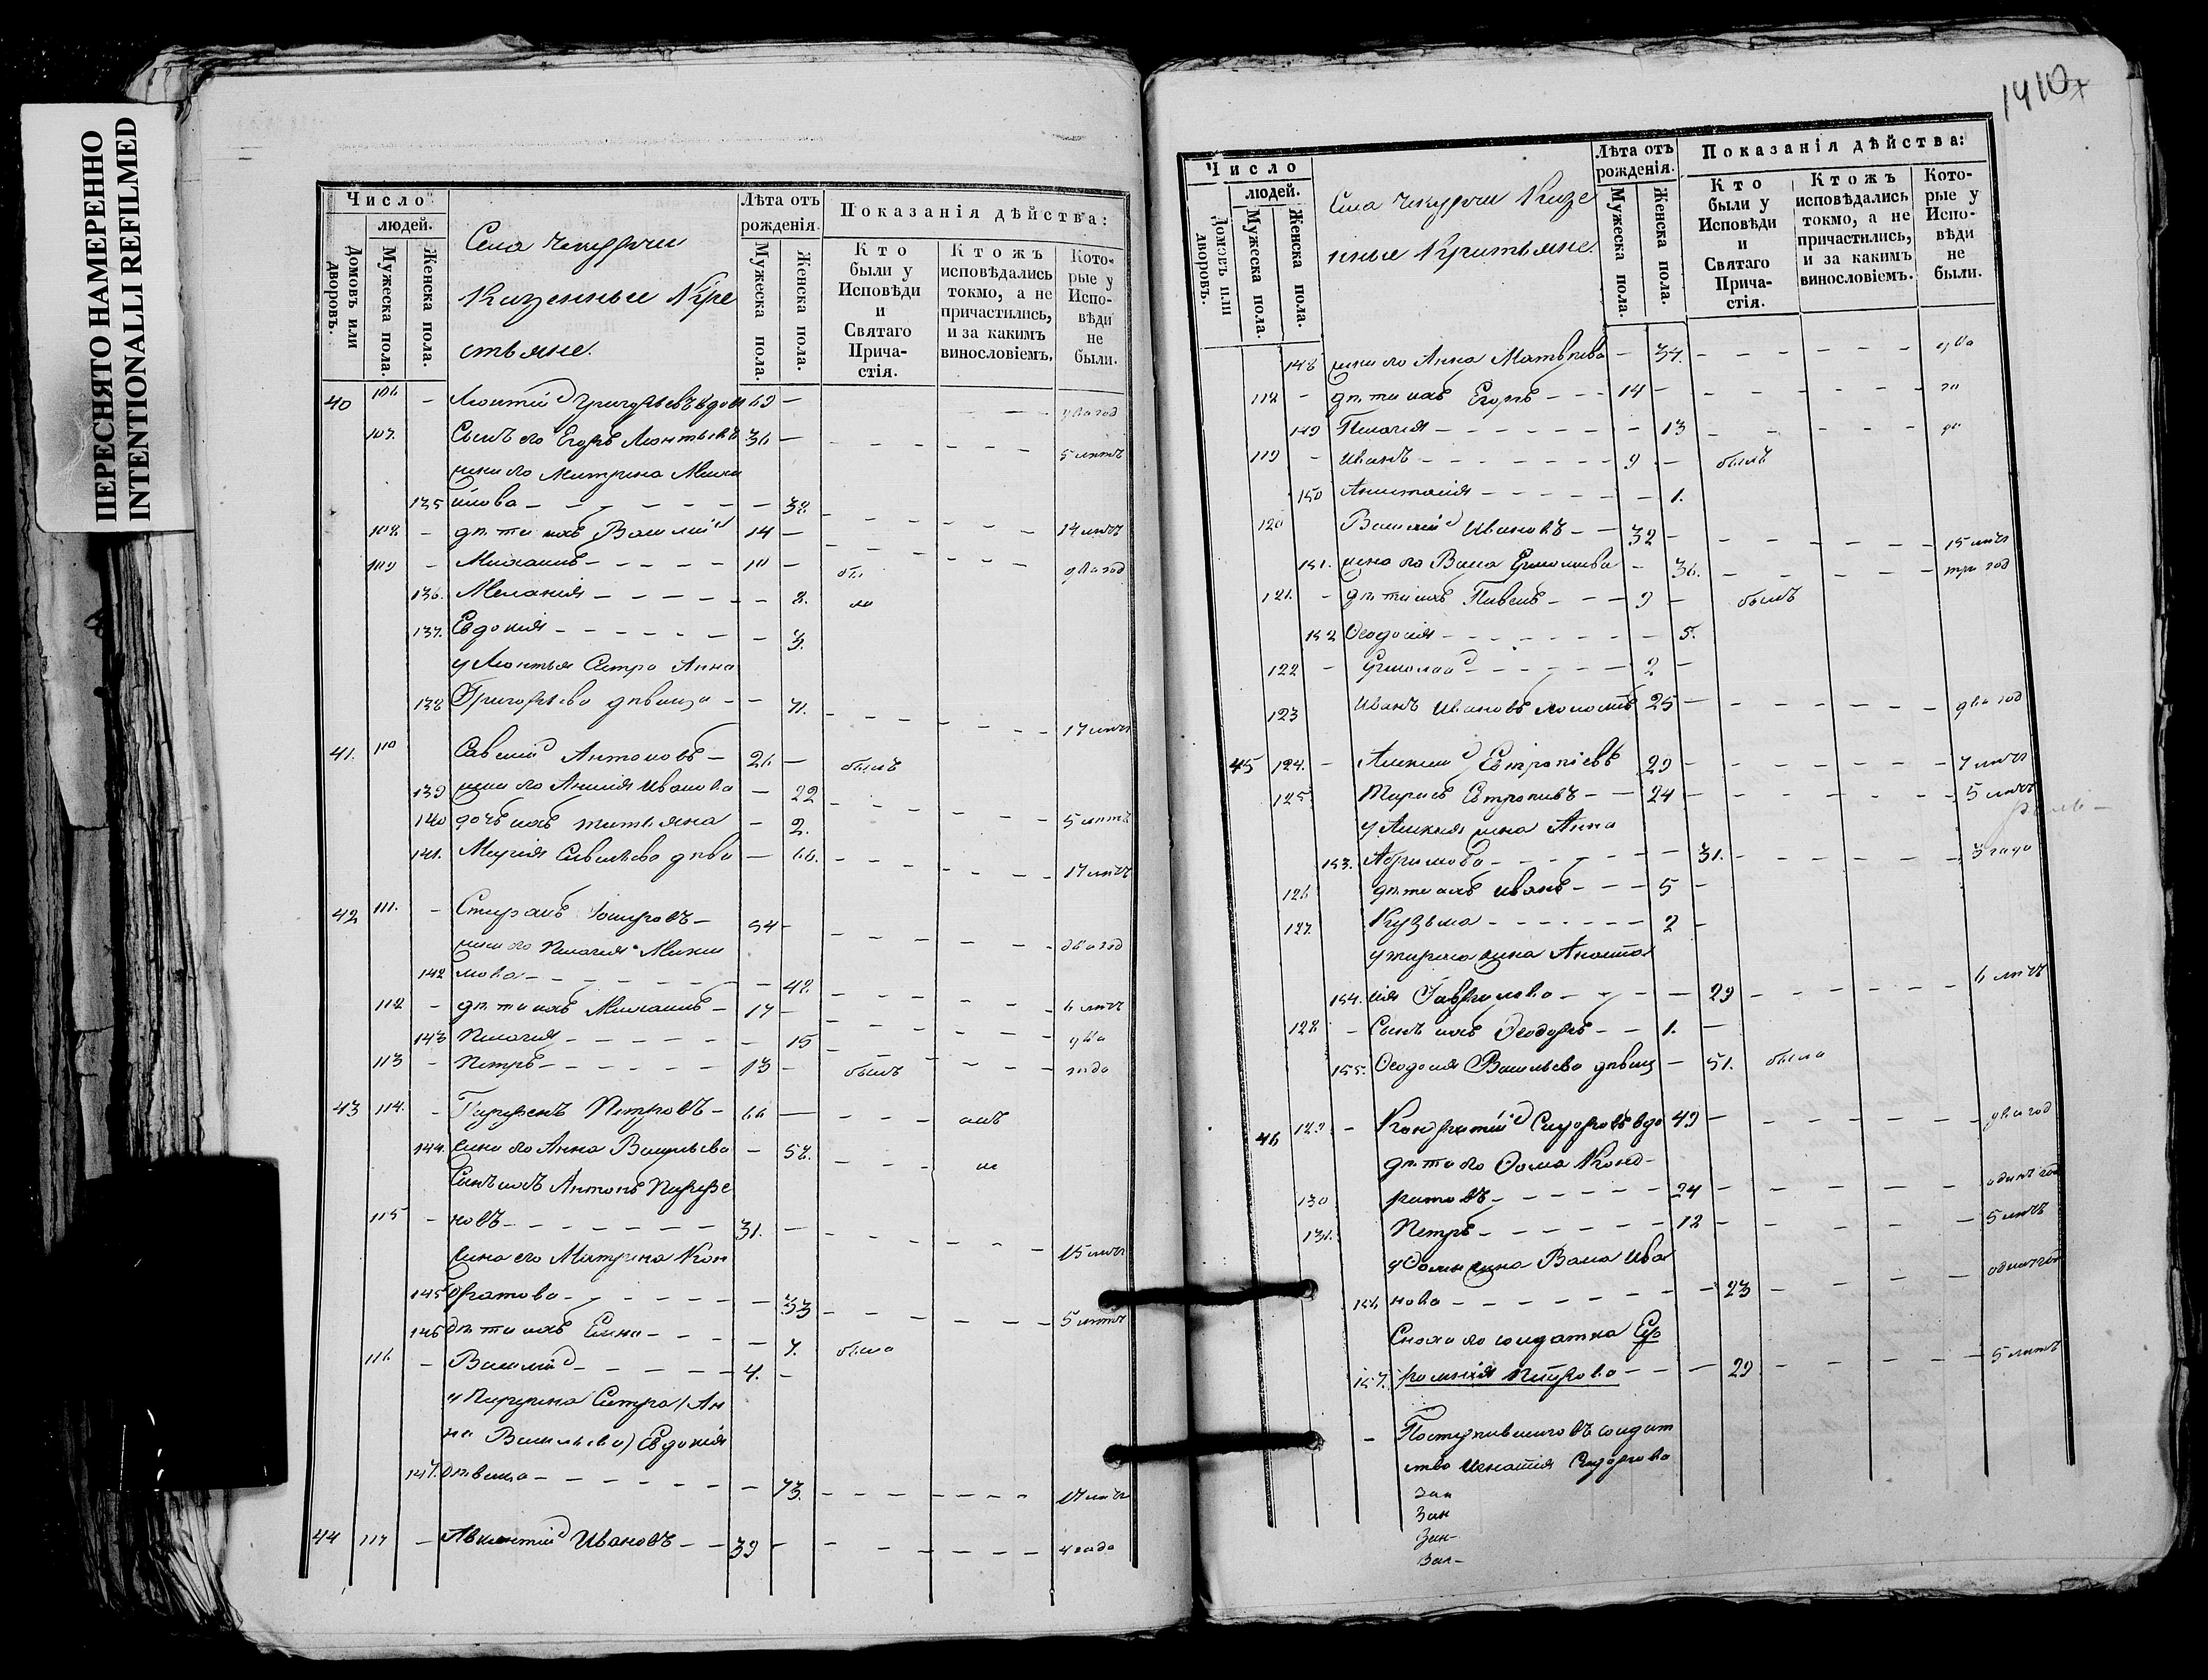 ПЕРЕСНЯТО НАМЕРЕННО
INTENTIONALLI REFILMED
Число
людей.
Домовъ или дворовъ.
Мужеска пола.
Женска пола.
Села
Казенные Кре
стьяне.
Лѣта отъ рожденія.
Мужеска пола.
Женска пола.
Показанія дѣйства:
Кто были у Исповѣди и Святаго Прича-стія.
Ктожъ исповѣдались токмо, а не причастились, и за какимъ винословіемъ.
Кото-рые у Испо-вѣди не были.
40 106 - Леонтій Григорьевъ вдов 69 - два год
107. Сынъ его Егоръ Леонтьевъ 36 - 5 лѣтъ
жена его Матрена Михаи
135 лова - 38.
108 - дѣти ихъ Василій 14 - 14 лѣтъ
109 - Михаилъ - 10 - два год
136. Меланія - 8.
137. Евдокія - 3.
у Леонтья Сестра Анна
138 Григорьева дѣвица - 71. 17 лѣтъ
41. 110 Савелій Антоновъ - 26 - былъ
139 жена его Аниія Иванова - 22
140 дочь ихъ Татьяна - 2. 5 лѣтъ
141. Марія Савельева дѣво - 66. 17 лѣтъ
42 111. - 54 - два год
жена его Пелагея
142 мова - 48.
112 - дѣти ихъ Михаилъ - 17 - 6 лѣтъ
143 Пелагея - 15 два
113 - Петръ - 13 - былъ года
43 114. - Парфенъ Петровъ - 66 -
144. жена его Анна Васильева - 58.
Сынъ ихъ Антонъ Парфе
115 - новъ - 31. - 15 лѣтъ
жена его Матрена Кон
145 дратова - 33 5 лѣтъ
146 дѣти ихъ Елена - 7. была
116 - Василій - 4. -
у Парфена Сестра (Ан
на Васильева) Евдокія
147. дѣвица - 73. 17 лѣтъ
44 117 - Авксентій Ивановъ - 39 - 4 года
1410
Число
людей.
Домовъ или дворовъ.
Мужеска пола.
Женска пола.
Села Казе
нные Крестьяне.
Лѣта отъ рожденія.
Мужеска пола.
Женска пола.
Показанія дѣйства:
Кто были у Исповѣди и Святаго Прича-стія.
Ктожъ исповѣдались токмо, а не причастились, и за какимъ винословіемъ.
Кото-рые у Испо-вѣди не были.
148 жена его Анна Матвѣева - 37. два
118 - дѣти ихъ Егоръ - 14 - го
149 Пелагея - 13
119 - Иванъ - 9 - былъ
150 Анастасія - 1.
120 Василій Ивановъ - 32 - 15 лѣтъ
151. жена его Васса Ермолаева - 36. три год
121. - дѣти ихъ Павелъ - 9 - былъ
152 Ѳеодосія - 5.
122 - Ермолай - 2 -
123 Иванъ Ивановъ холостъ 25 - два год
45 124. - Алексѣй Евтропіевъ 29 - 7 лѣтъ
125 Тарасъ Евтропіевъ - 24 - 5 лѣтъ
у Алексѣя жена Анна
153. Абрамова - 31. 3 года
126 дѣти ихъ Иванъ - 5 -
127. Кузьма - 2 -
у Тараса жена Анаста
154. сія Гаврилова - 29 6 лѣтъ
128 - Сынъ ихъ Ѳеодоръ - 1. -
155. Ѳеодосія Васильева дѣвиц - 51. была
46 129 - Кондратій Сидоровъ вдо 49 - два год
дѣти его Ѳома Конд-
130 ратовъ - 24 - одинъ год
131. Петръ - 12 - 5 лѣтъ
у Ѳомы жена Васса Ива
156 нова - 23 - одинъ год
Сноха его солдатка Еф
157. росинія Петрова - 29 5 лѣтъ
- Поступившаго въ солдат
ство Игнатія Сидорова